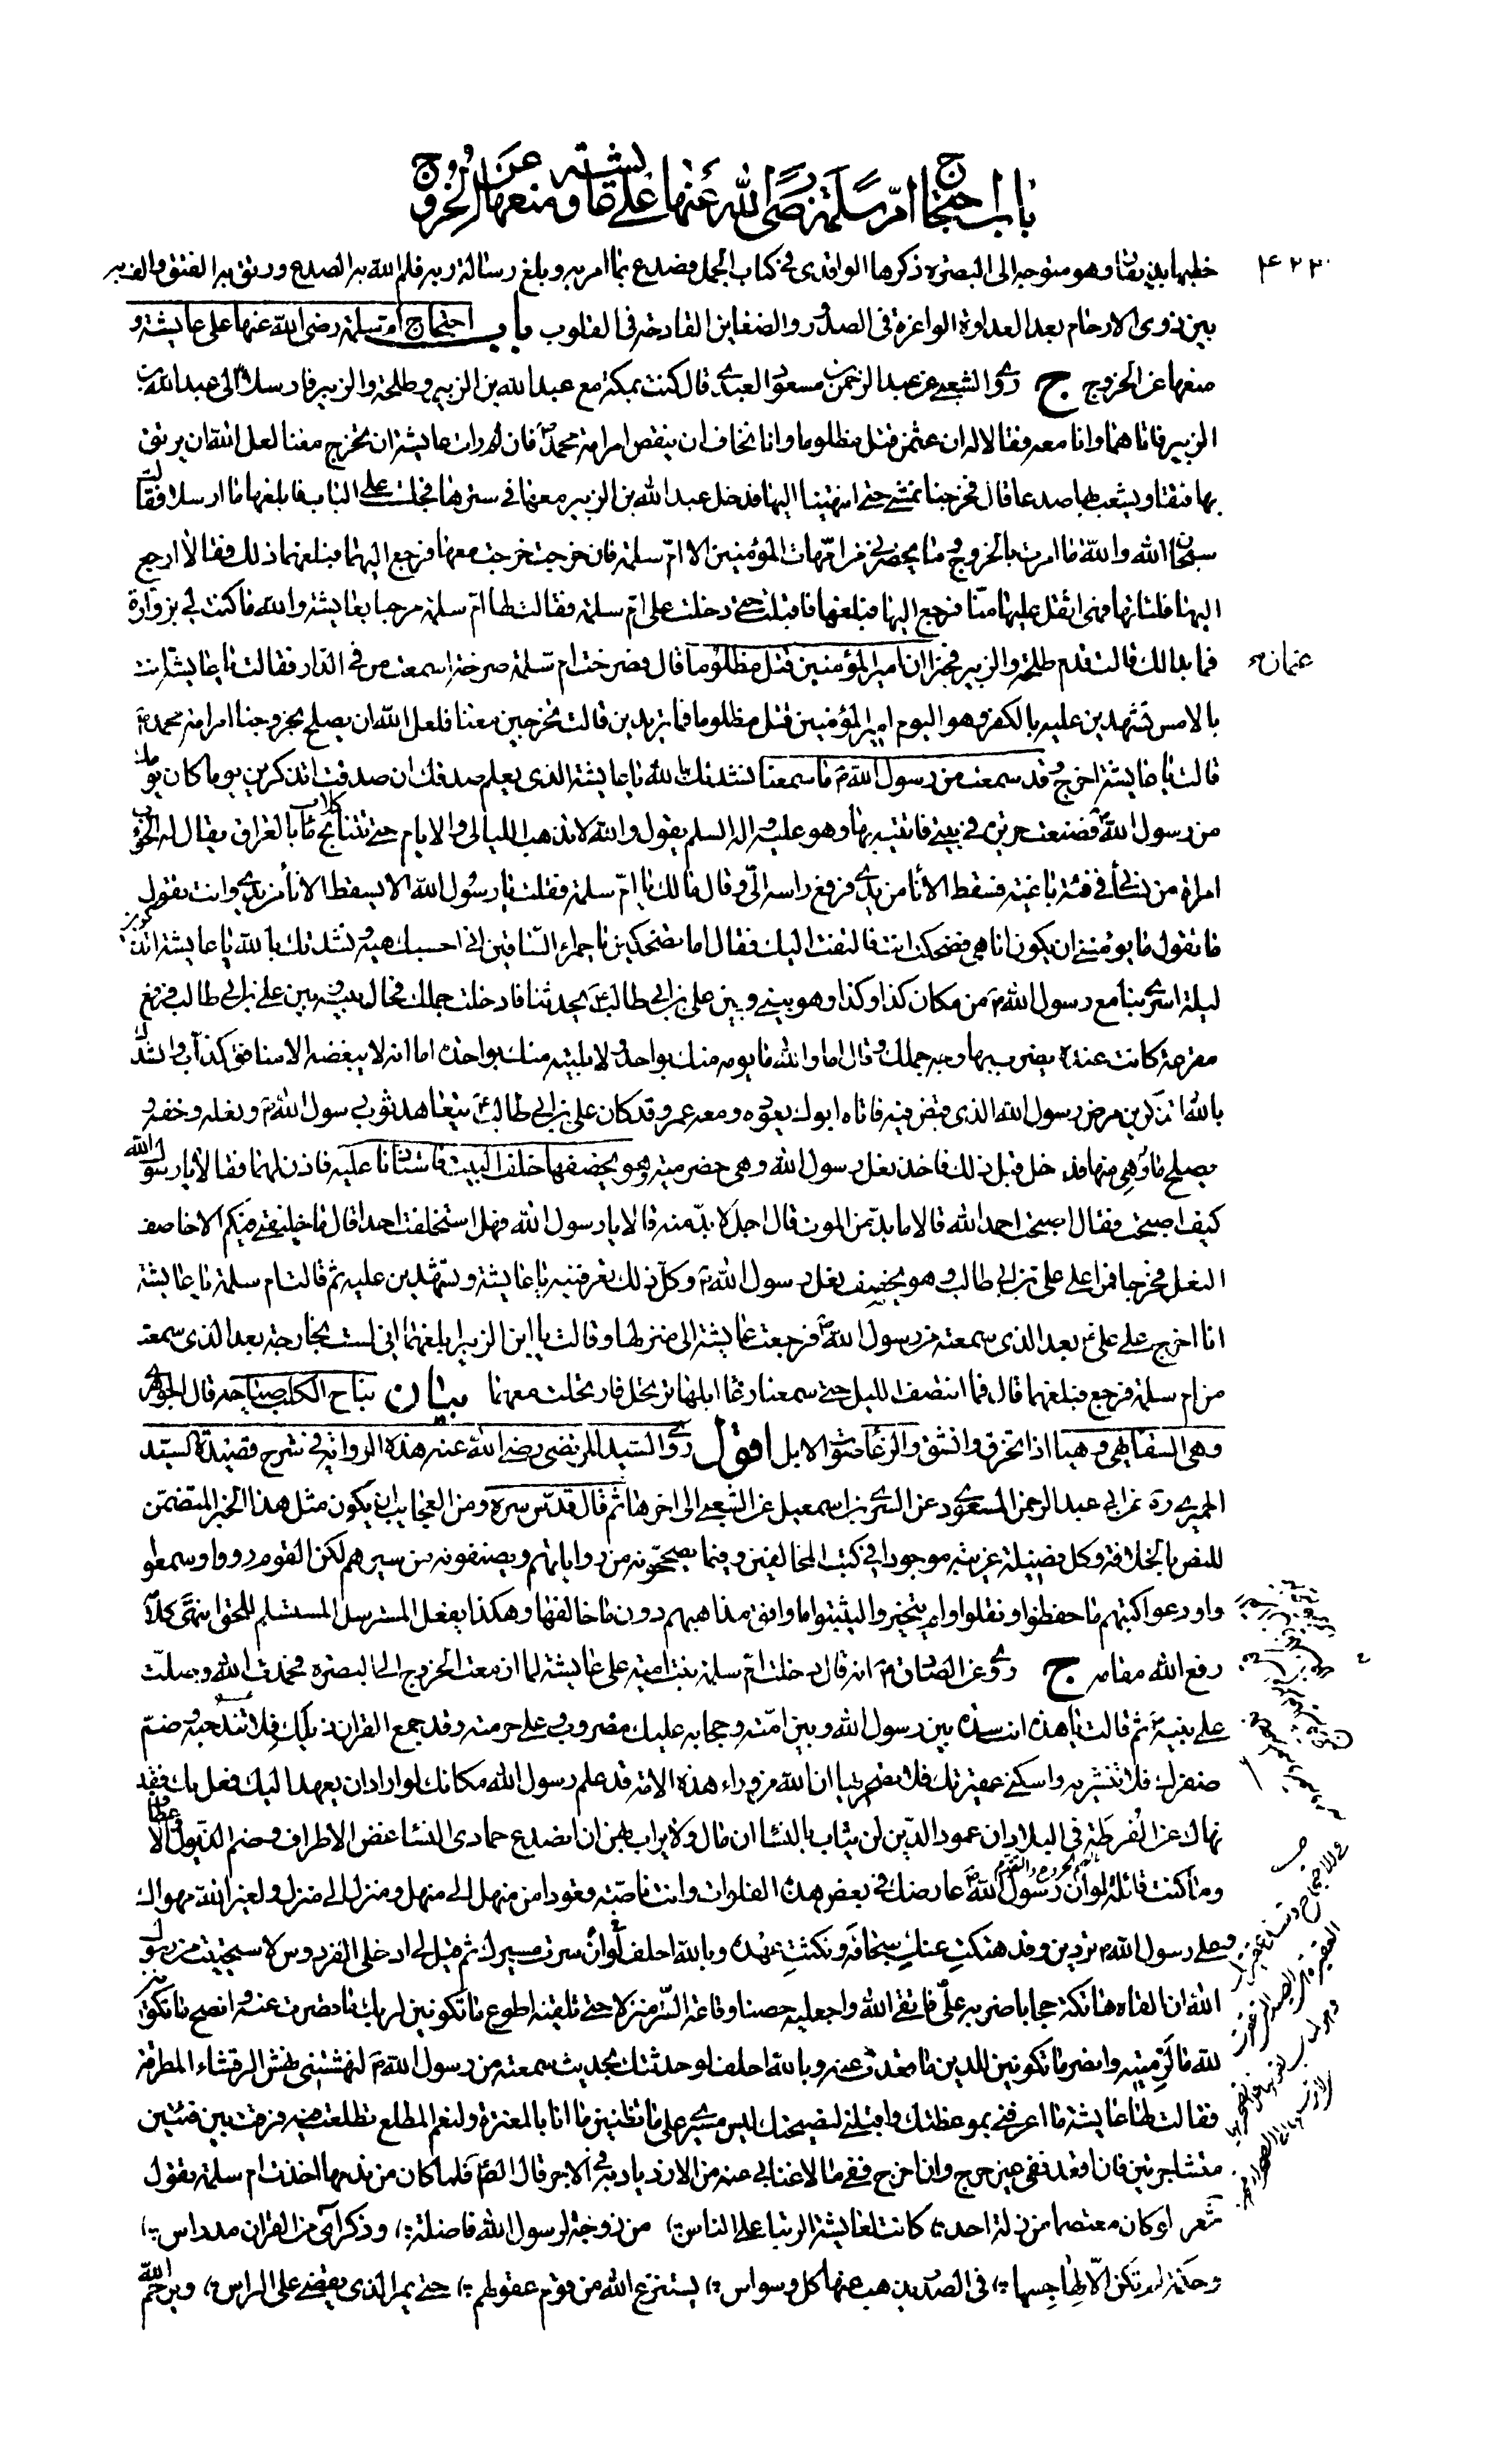 باب احتجاج امّ سلمة رضي الله عنها على عايشة ومنعها عن الخروج
خطبها بذيقار وهو متوجه الى البصرة ذكرها الواقدى في كتاب الجمل فصدع بما امر به وبلغ رسالة ربه فلم الله به الصدع ورتق به الفتق والف به
بين ذوى الارحام بعد العداوة الواغرة في الصدور والضغاين القادحة في القلوب باب احتجاج ام سلمة رضى الله عنها على عايشة و
منعها عن الخروج ج روى الشعبي عن عبد الرحمن بن مسعود العبدي قال كنت بمكة مع عبد الله بن الزبير وطلحة والزبير فارسلا الى عبد الله بن
الزبير فاتاهما وانا معه فقالا له ان عثمن قتل مظلوما وانا نخاف ان ينقض امر امة محمد ص فان رات عايشة ان تخرج معنا لعل الله ان يرتق
بها فتقا ويشعب بها صدعا قال فخرجنا نمشي حتى انتهينا اليها فدخل عبد الله بن الزبير معها في سترها فجلست على الباب فابلغها ما ارسلا فقالت
سبحان الله والله ما امرت بالخروج وما يحضرني من امّهات المؤمنين الا امّ سلمة فان خرجت خرجت معها فرجع اليهما فبلغهما ذلك فقالا ارجع
اليها فلتاتها فهى اثقل عليها منّا فرجع اليها فبلغها فاقبلت حتى دخلت على امّ سلمة فقالت لها امّ سلمة مرحبا بعايشة والله ما كنت لي بزوّارة
فما بدا لك قالت قدم طلحة والزبير فخبرا ان امير المؤمنين قتل مظلوما قال فصرخت ام سلمة صرخة اسمعت من في الدار فقالت يا عايشة انت
عثمان
بالامس تشهدين عليه بالكفر وهو اليوم امير المؤمنين قتل مظلوما فما تريدين قالت تخرجين معنا فلعل الله ان يصلح بخروجنا امر امة محمد ص
قالت يا عايشة اخرج وقد سمعت من رسول الله ص ما سمعنا نشدتك بالله يا عايشة الذى يعلم صدقك ان صدقت اتذكرين يوما كان يومك
من رسول الله ص فصنعت حريرة في بيتي فاتيته بها وهو عليه واله السلم يقول والله لا تذهب الليالى والايام حتى تتنابح كلاب ماء بالعراق يقال له الحوأب
امراة من نسائي في فئة باغية فسقط الاناء من يدي فرفع راسه الىّ وقال مالك يا امّ سلمة فقلت يا رسول الله الا يسقط الاناء من يدي وانت تقول
ما تقول ما يؤمنني ان يكون انا هي فضحكت انت فالتفت اليك فقال اما تضحكين يا حمراء السّاقين اني احسبك هيه ونشدتك بالله يا عايشة اتذكرين
ليلة اسرى بنا مع رسول الله ص من مكان كذا وكذا وهو بيني وبين علي بن ابي طالب ع يحدثنا فادخلت جملك فحال بينه وبين علي بن ابي طالب فرفع
مقرعة كانت عنده يضرب بها وجه جملك وقال اما والله ما يومه منك بواحد ولا بليته منك بواحدة اما انه لا يبغضه الا منافق كذّاب وانشدك
بالله اتذكرين مرض رسول الله الذى قبض فيه فاتاه ابوك يعوده ومعه عمر وقد كان علي بن ابي طالب ع يتعاهد ثوب رسول الله ص ونعله وخفه و
يصلح ما وهي منها فدخل قبل ذلك فاخذ نعل رسول الله وهي حضرمية وهو يخصفها خلف البيت فاستاذنا عليه فاذن لهما فقالا يا رسول الله
كيف اصبحت فقال اصبحت احمد الله قالا ما بدّ من الموت قال اجل لا بدّ منه قالا يا رسول الله فهل استخلفت احدا قال ما خليفتي فيكم الا خاصف
النعل فخرجا فمرا على علي بن ابي طالب وهو يخصف نعل رسول الله ص وكل ذلك تعرفينه يا عايشة وتشهدين عليه ثم قالت ام سلمة يا عايشة
انا اخرج على علي ع بعد الذي سمعته من رسول الله ص فرجعت عايشة الى منزلها وقالت يا ابن الزبير ابلغهما اني لست بخارجة بعد الذى سمعته
من ام سلمة فرجع فبلغهما قال فما انتصف الليل حتى سمعنا رغاء ابلها ترتحل فارتحلت معهما بيان نباح الكلب صياحه قال الجوهري
وهى السقاء يهي وهيا اذا تخرق وانشق والرغا صوت الابل اقول روى السيد المرتضى رضى الله عنه هذه الرواية في شرح قصيدة السيّد
الحميري ره عن ابي عبد الرحمن المسعودي عن السري بن اسمعيل عن الشعبي الى اخرها ثم قال قدّس سره ومن العجايب ان يكون مثل هذا الخبر المتضمّن
للنص بالخلافة وكل فضيلة غريبة موجودا في كتب المخالفين وفيما يصححّونه من رواياتهم ويصنفونه من سيرهم لكن القوم رووا وسمعوا
واودعوا كتبهم ما حفظوا ونقلوا ولم يتخيروا ليثبتوا ما وافق مذاهبهم دون ما خالفها وهكذا يفعل المسترسل المستسلم للحق انتهى كلامه
رفع الله مقامه ج روى عن الصادق ع انه قال دخلت امّ سلمة بنت امية على عايشة لما ازمعت الخروج الى البصرة فحمدت الله وصلّت
على نبيه ص ثم قالت يا هذه انت سدّة بين رسول الله وبين امّته وحجابه عليك مضروب وعلى حرمته وقد جمع القران ذيلك فلا تندحيه وضمّ
ضفرك فلا تنشريه واسكني عقيرتك فلا تصحريها ان الله من وراء هذه الامة قد علم رسول الله مكانك لو اراد ان يعهد اليك فعل بك فقد
نهاك عن الفرطة في البلاد ان عمود الدّين لن يثاب بالنساء ان مال ولا يراب بهن ان انصدع حمادى النساء غض الاطراف وضم الذيول والا
وما كنت قائلة لو ان رسول الله ص عارضك في بعض هذه الفلوات وانت ناصّة قعودا من منهل الى منهل ومنزل الى منزل ولغير الله مهواك
وعلى رسول الله ص تردين وقد هتكت عنك سجافه ونكثت عهده وبالله احلف لو ان سرت مسيرك ثم قيل لي ادخلي الفردوس لاستحييت من رسول
الله ان القاه هاتكة حجابا ضربه عليّ فاتقي الله واجعليه حصنا وقاعة السّتر منزلا حتى تلقيه اطوع ما تكونين لربك ما قصرت عنه وانصح ما تكونين
لله ما لزمتيه وانصر ما تكونين للدين ما قعدت عنه وبالله احلف لو حدثتك بحديث سمعته من رسول الله ص لنهشتيني نهش الرقشاء المطرقة
فقالت لها عايشة ما اعرفني بموعظتك واقبلني لنصيحتك ليس مسيري على ما تظنين ما انا بالمغترة ولنعم المطلع تطلعت فيه فرقت بين فئتين
متشاجرتين فان اقعد ففي غير حرج وان اخرج ففي ما لا غنا بي عنه من الازدياد به في الاجر قال الص ع فلما كان من ندمها اخذت ام سلمة تقول
شعر لو كان معتصما من زلة احد كانت لعايشة الرتبا على الناس من زوجة لرسول الله فاضلة وذكر آي من القران مدراس
وحكمة لم تكن الّا لهاجسها في الصدر يذهب عنها كل وسواس يستنزع الله من قوم عقولهم حتى يمر الذى يقضي على الراس ويرحم الله